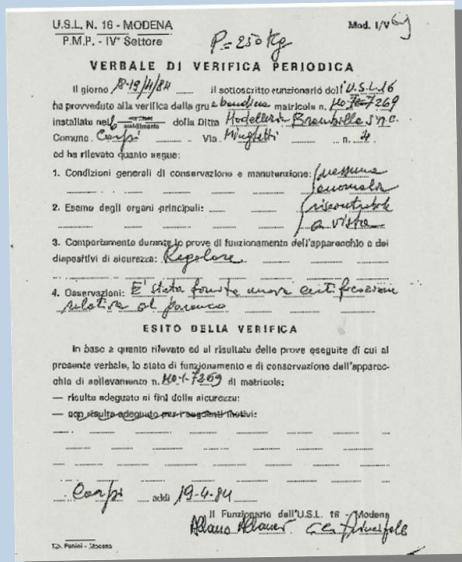 U.S.L. N. 16 - MODENA
P.M.P. - IV° Settore
Mod. I/V
P = 250 Kg
VERBALE DI VERIFICA PERIODICA
Il giorno 18-19/4/84 il sottoscritto funzionario dell'U.S.L. 16
ha provveduto alla verifica della gru a bandiera matricola n. MO-1-7269
installata nell' della Ditta Modelleria Brambilla s.n.c.
Comune Carpi Via Minghetti n. 4
ed ha rilevato quanto segue:
1. Condizioni generali di conservazione e manutenzione: nessuna
anomalia
2. Esame degli organi principali: riscontrabile
a vista
3. Comportamento durante le prove di funzionamento dell'apparecchio e dei
dispositivi di sicurezza: Regolare
4. Osservazioni: E' stata fornita nuova certificazione
relativa al paranco
ESITO DELLA VERIFICA
In base a quanto rilevato ed ai risultati delle prove eseguite di cui al
presente verbale, lo stato di funzionamento e di conservazione dell'apparec-
chio di sollevamento n. MO-1-7269 di matricola:
— risulta adeguato ai fini della sicurezza:
— non risulta adeguato per i seguenti motivi:
Carpi addì 19-4-84
Il Funzionario dell'U.S.L. 16 - Modena
Tip. Panini - Modena